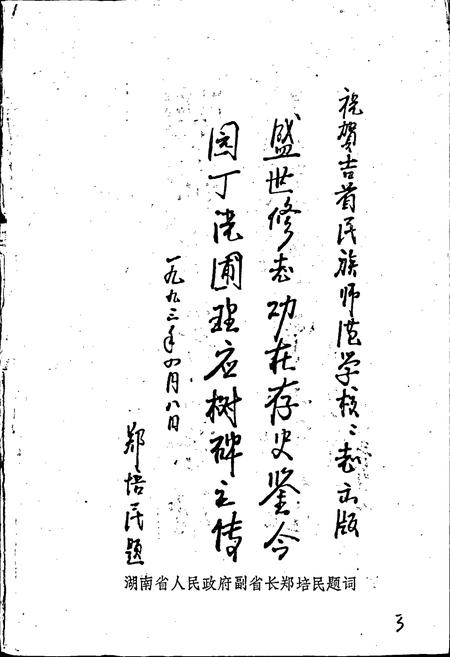 祝贺吉首民族师范学校校志出版
盛世修志功在存史鉴今
园丁浇圃理应树碑立传
一九九三年四月八日
郑培民题
湖南省人民政府副省长郑培民题词
3